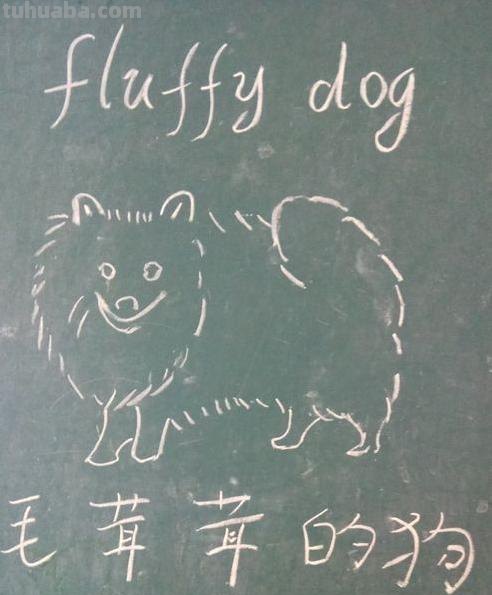 tuhuaba.com
fluffy dog
毛茸茸的狗